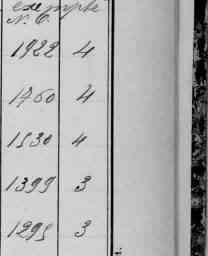 exempte
N. C.
1922 4
1460 4
1530 4
1399 3
1295 3